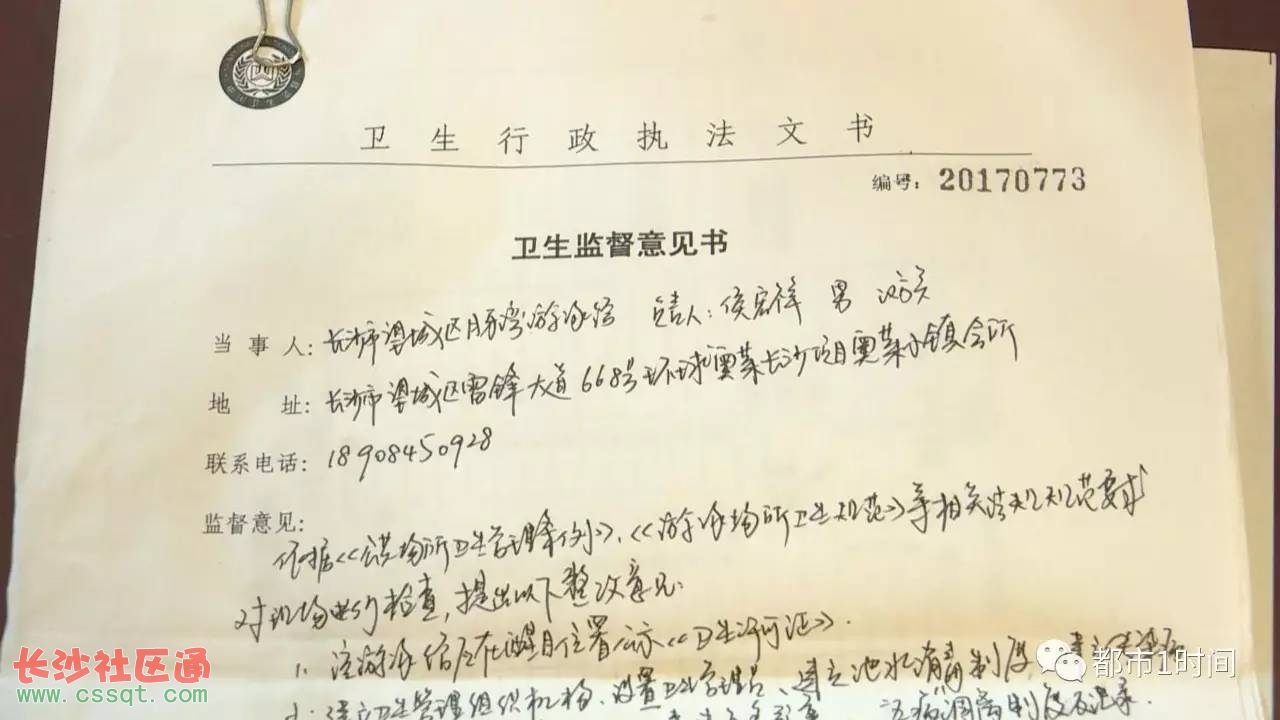 卫生行政执法文书
编号：20170773
卫生监督意见书
当事人：长沙市望城区月亮湾游泳馆 负责人：侯宏祥 男 汉族
地址：长沙市望城区雷锋大道668号环球奥莱长沙项目奥莱小镇会所
联系电话：18908450928
监督意见：
依据《公共场所卫生管理条例》、《游泳场所卫生规范》等相关法规规范要求
对现场进行检查，提出以下整改意见：
1、该游泳馆应在醒目位置公示《卫生许可证》.
建立卫生管理组织机构、设置卫生管理员、建立池水消毒制度
调离制度及记录
都市1时间
长沙社区通
www.cssqt.com